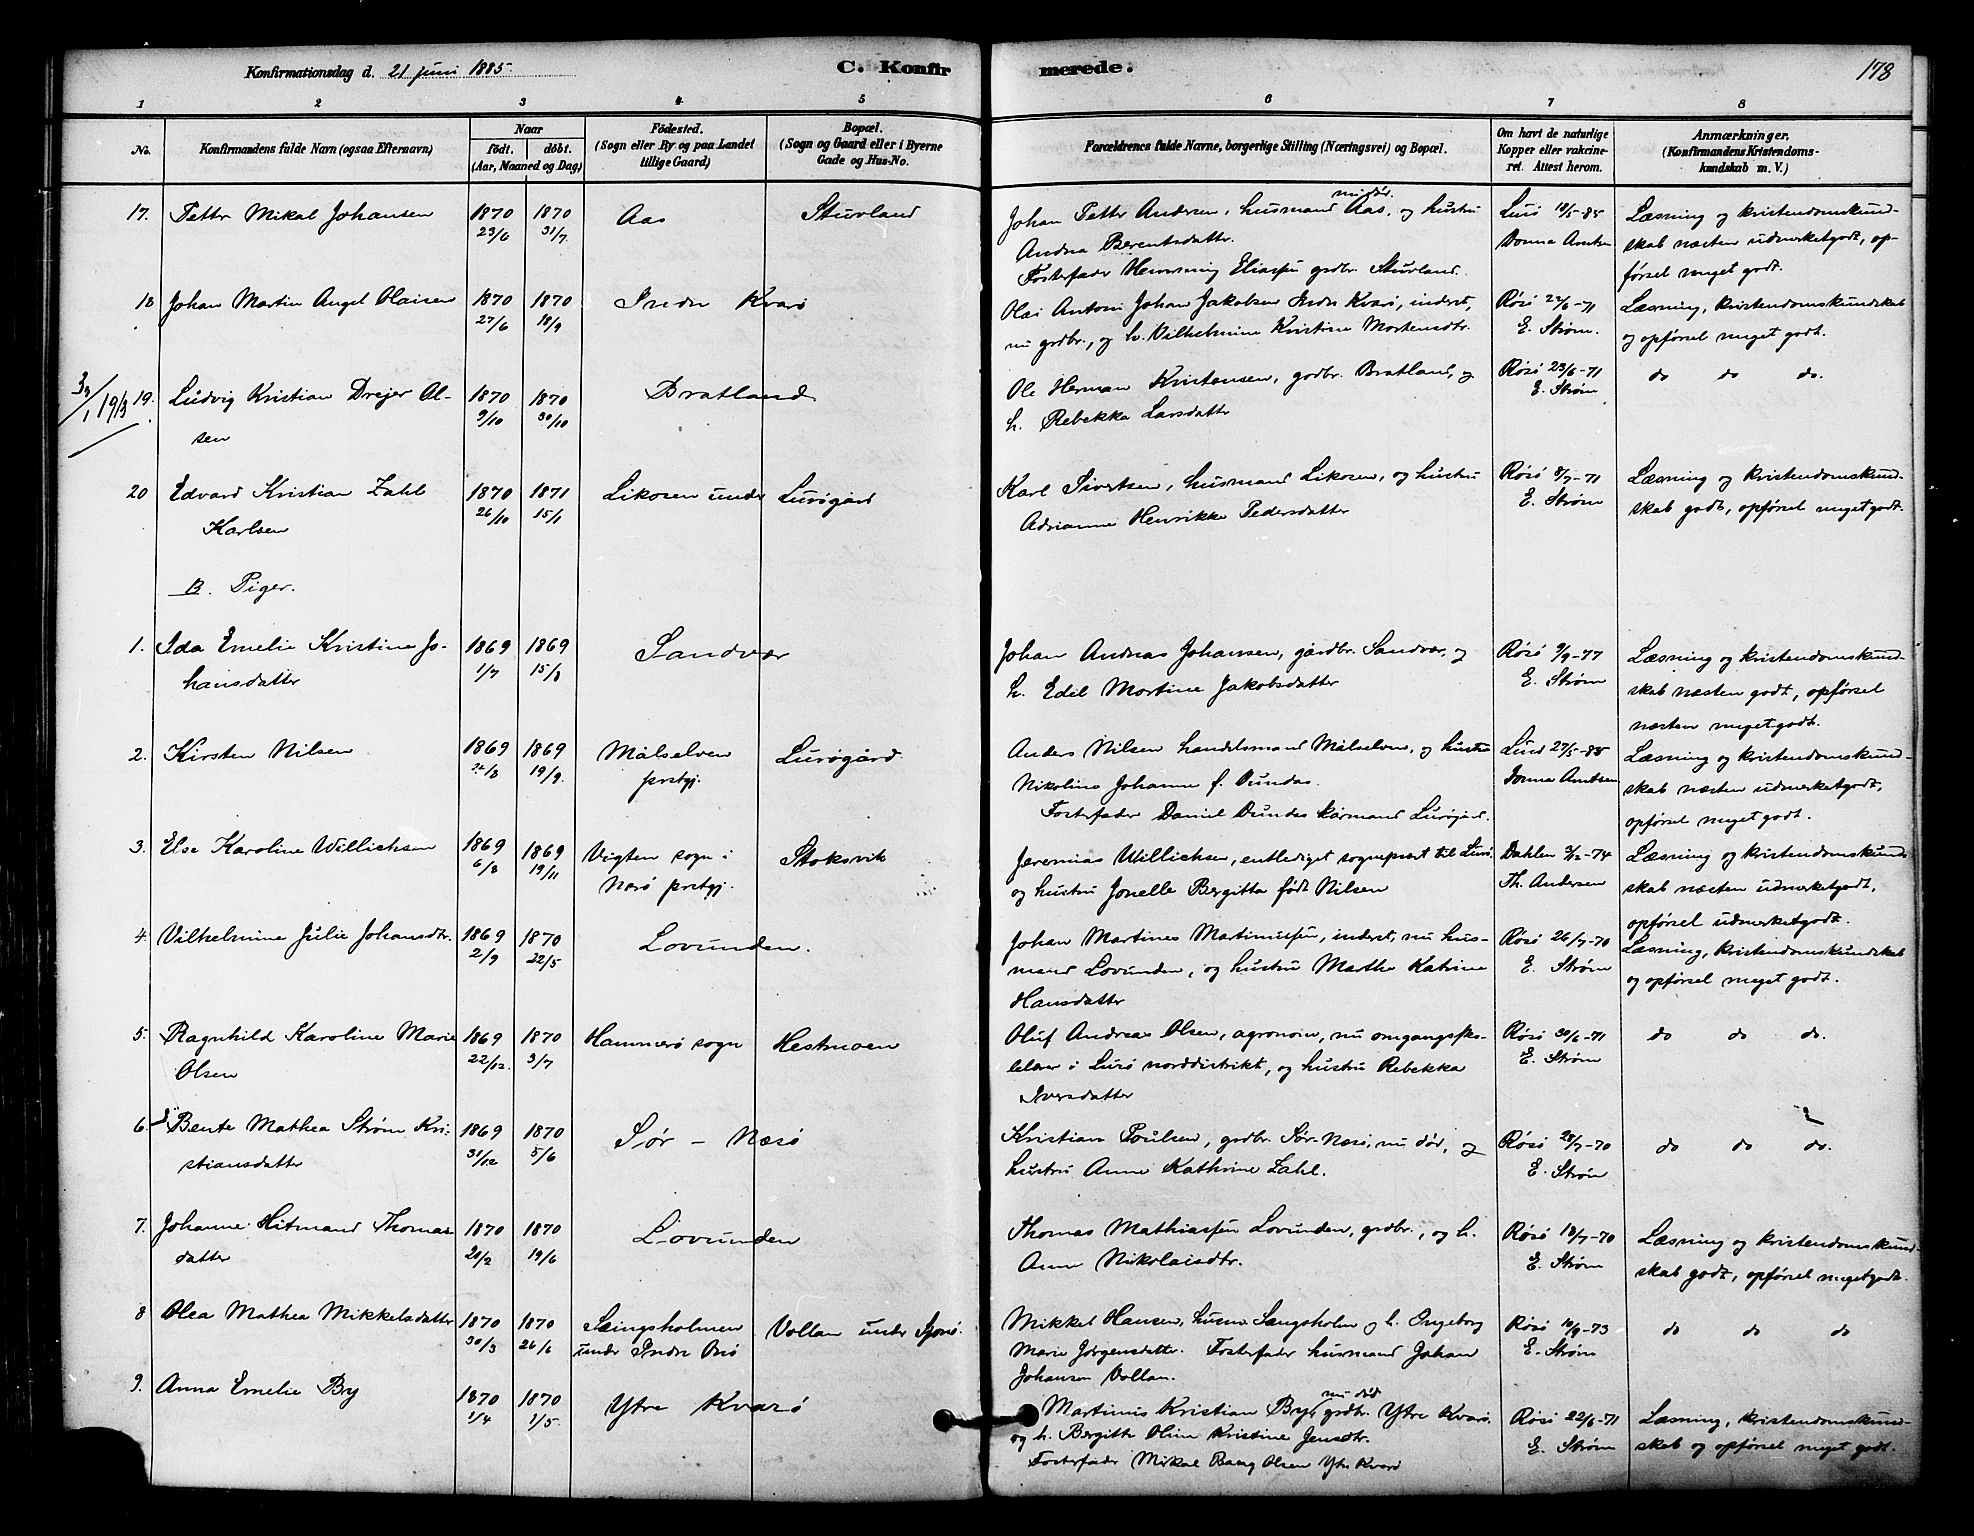 Konfirmationsdag d. 21 juni 1885.
C. Konfirmerede.
178
1 2 3 4 5 6 7 8
No. Konfirmandens fulde Navn (ogsaa Efternavn) Naar født. døbt. (Aar, Maaned og Dag) Fødested. (Sogn eller By og paa Landet tillige Gaard) Bopæl. (Sogn og Gaard eller i Byerne Gade og Hus-No. Forældrenes fulde Navne, borgerlige Stilling (Næringsvei) og Bopæl. Om havt de naturlige Kopper eller vakcineret. Attest herom. Anmærkninger. (Konfirmandens Kristendomskundskab m. V.)
17. Petter Mikal Johansen 1870 23/6 1870 31/7 Aas Stuvland
Johan Petter Andersen, husmand Aas, nu død. og hustru
Andrea Berentsdatter.
Fosterfader Henning Eliassen grdbr. Stuvland.
Lurø 18/5-85
Donna Arntsen
Læsning og kristendomskund-
skab næsten udmerketgodt, op-
førsel meget godt.
18 Johan Martin Angel Olaisen 1870 27/6 1870 18/9 Indre Kvarø
Olai Antoni Johan Jakobsen Indre Kvarø, inderst,
nu grdbr., og h. Vilhelmine Kristine Mortensdtr.
Røsø 27/6-71
E. Strøm.
Læsning, kristendomskundskab
og opførsel meget godt.
19. Ludvig Kristian Drejer Ol-
sen
1870 9/10 1870 30/10 Bratland
Ole Herman Kristensen, grdbr. Bratland, og
h. Rebekka Larsdatter
Røsø 23/6-71
E. Strøm
do do do.
20 Edvard Kristian Zahl
Karlsen
1870 26/10 1871 15/1 Likosen under Lurøgård
Karl Sivertsen, husmand Likosen, og hustru
Adrianne Henrikke Pedersdatter
Røsø 8/7-71
E. Strøm
Læsning og kristendomskund-
skab godt, opførsel megetgodt.
B. Piger.
1. Ida Emelie Kristine Jo-
hansdatter
1869 1/7 1869 15/8 Sandvær
Johan Andreas Johansen, gårdbr. Sandvær, og
h. Edel Martine Jakobsdatter
Røsø 9/9-77
E. Strøm
Læsning og kristendomskund-
skab næsten godt, opførsel
næsten megetgodt.
2. Kirsten Nilsen 1869 1869 19/9. Målselven
prstgj.
Lurøgård.
Anders Nilsen handelsmand Målselven, og hustru
Nikoline Johanne f. Dundas.
Fosterfader Daniel Dundas kårmand Lurøgård.
Lurø 27/5-85
Donna Arntsen
Læsning og kristendomskund-
skab næsten udmerketgodt,
opførsel meget godt.
3. Else Karoline Willichsen 1869 6/8 1869 19/11 Vigten sogn i
Nærø prstgj.
Stoksvik
Jeremias Willichsen, entlediget sogneprest til Lurø,
og hustru Jonelle Bergitta født Nilsen
Dahlen 3/2-74
Th. Andersen
Læsning og kristendomskund-
skab næsten udmerketgodt,
opførsel udmerketgodt.
4. Vilhelmine Julie Johansdtr. 1869 2/9 1870 22/5 Lovunden.
Johan Martines Martinussen, inderst, nu hus-
mand Lovunden, og hustru Marthe Katrine
Hansdatter
Røsø 26/7-70
E. Strøm
Læsning, kristendomskundskab
og opførsel meget godt.
5. Ragnhild Karoline Marie
Olsen
1869 22/12. 1870 3/7 Hammerø sogn Hestmoen
Oluf Andreas Olsen, agronom, nu omgangssko-
lelærer i Lurø norddistrikt, og hustru Rebekka
Iversdatter
Røsø 30/6-71
E. Strøm
do do do.
6. Bente Mathea Strøm Kri-
stiansdatter
1869 31/12 1870 5/6 Sør - Næsø
Kristian Poulsen, grdbr. Sør-Næsø, nu død, og
hustru Anne Kathrine Zahl.
Røsø 28/7-70
E. Strøm
do do do.
7. Johanne Hitmand Thomas-
datter
1870 20/2 1870 19/6 Lovunden
Thomas Mathiassen Lovunden, grdbr., og h.
Anne Nikolaisdtr.
Røsø 18/7-70
E. Strøm
Læsning og kristendomskund-
skab godt, opførsel megetgodt.
8 Olea Mathea Mikkelsdatter 1870 30/3 1870 26/6 Sængsholmen
under Indre Onø
Vollan under Sjonø.
Mikkel Hansen, husm. Sængsholm og h. Ingeborg
Marie Jørgensdatter. Fosterfader husmand Johan
Johansen Vollan.
Røsø 10/9-73
E. Strøm
do do do
9. Anna Emelie By 1870 1/4 1870 1/5. Ytre Kvarø
Martinus Kristian By, nu død grdbr. Ytre Kvarø.
og h. Bergitte Oline Kristine Jensdtr.
Fosterfader Mikal Bang Olsen Ytre Kvarø
Røsø 22/6-71
E. Strøm
Læsning, kristendomskund-
skab og opførsel meget godt.